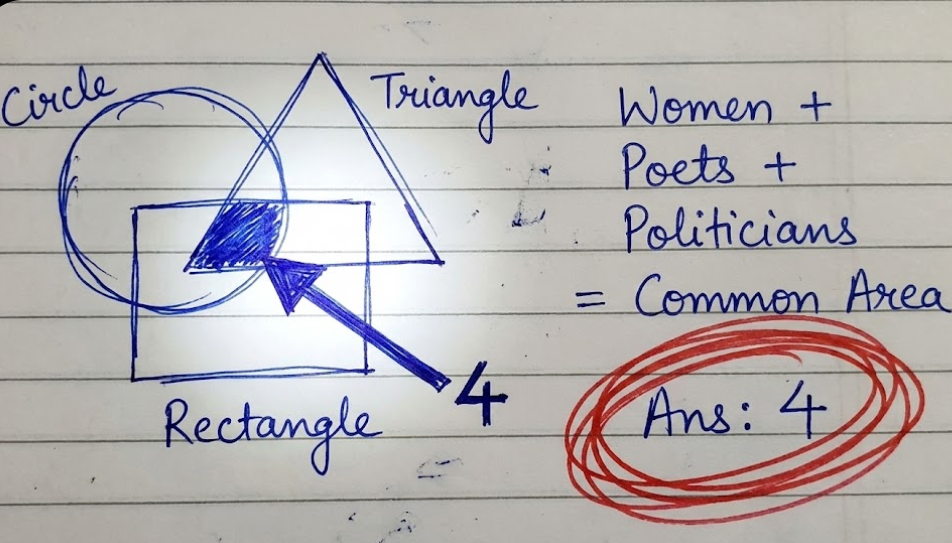 Circle
Triangle
Rectangle
4
Women +
Poets +
Politicians
= Common Area
Ans: 4